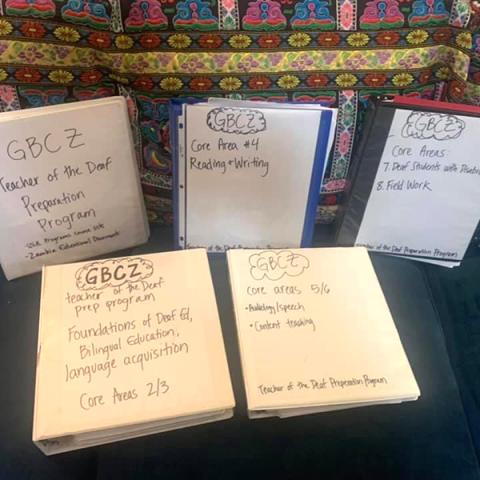 GBCZ
Teacher of the Deaf
Preparation
Program
Programs Course Lists
- Zambia Educational Documents
GBCZ
Core Area #4
Reading + Writing
Teacher of the Deaf Preparation Program
GBCZ
Core Areas:
7. Deaf Students with
8. Field Work
Teacher of the Deaf Preparation Program
GBCZ
teacher of the Deaf
prep program
Foundations of Deaf Ed,
Bilingual Education,
language acquisition
Core Areas 2/3
GBCZ
core areas 5/6
• Audiology/speech
• Content teaching
Teacher of the Deaf Preparation Program